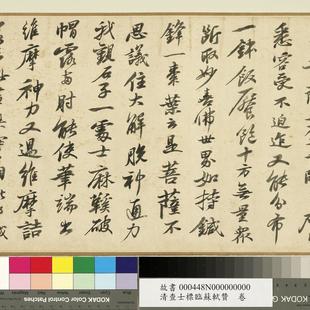 悉容受不迫迮又能分布
一鉢飯饜飽十方無量眾
斷取妙喜佛世界如持鍼
鋒一棗葉云是菩薩不
思議住大解脫神通力
我觀石子一處士麻鞵破
帽露兩肘能使筆端出
維摩神力又過維摩詰
KODAK Color Control Patches
KODAK Gray
故書 000448N000000000
清查士標臨蘇軾贊 卷